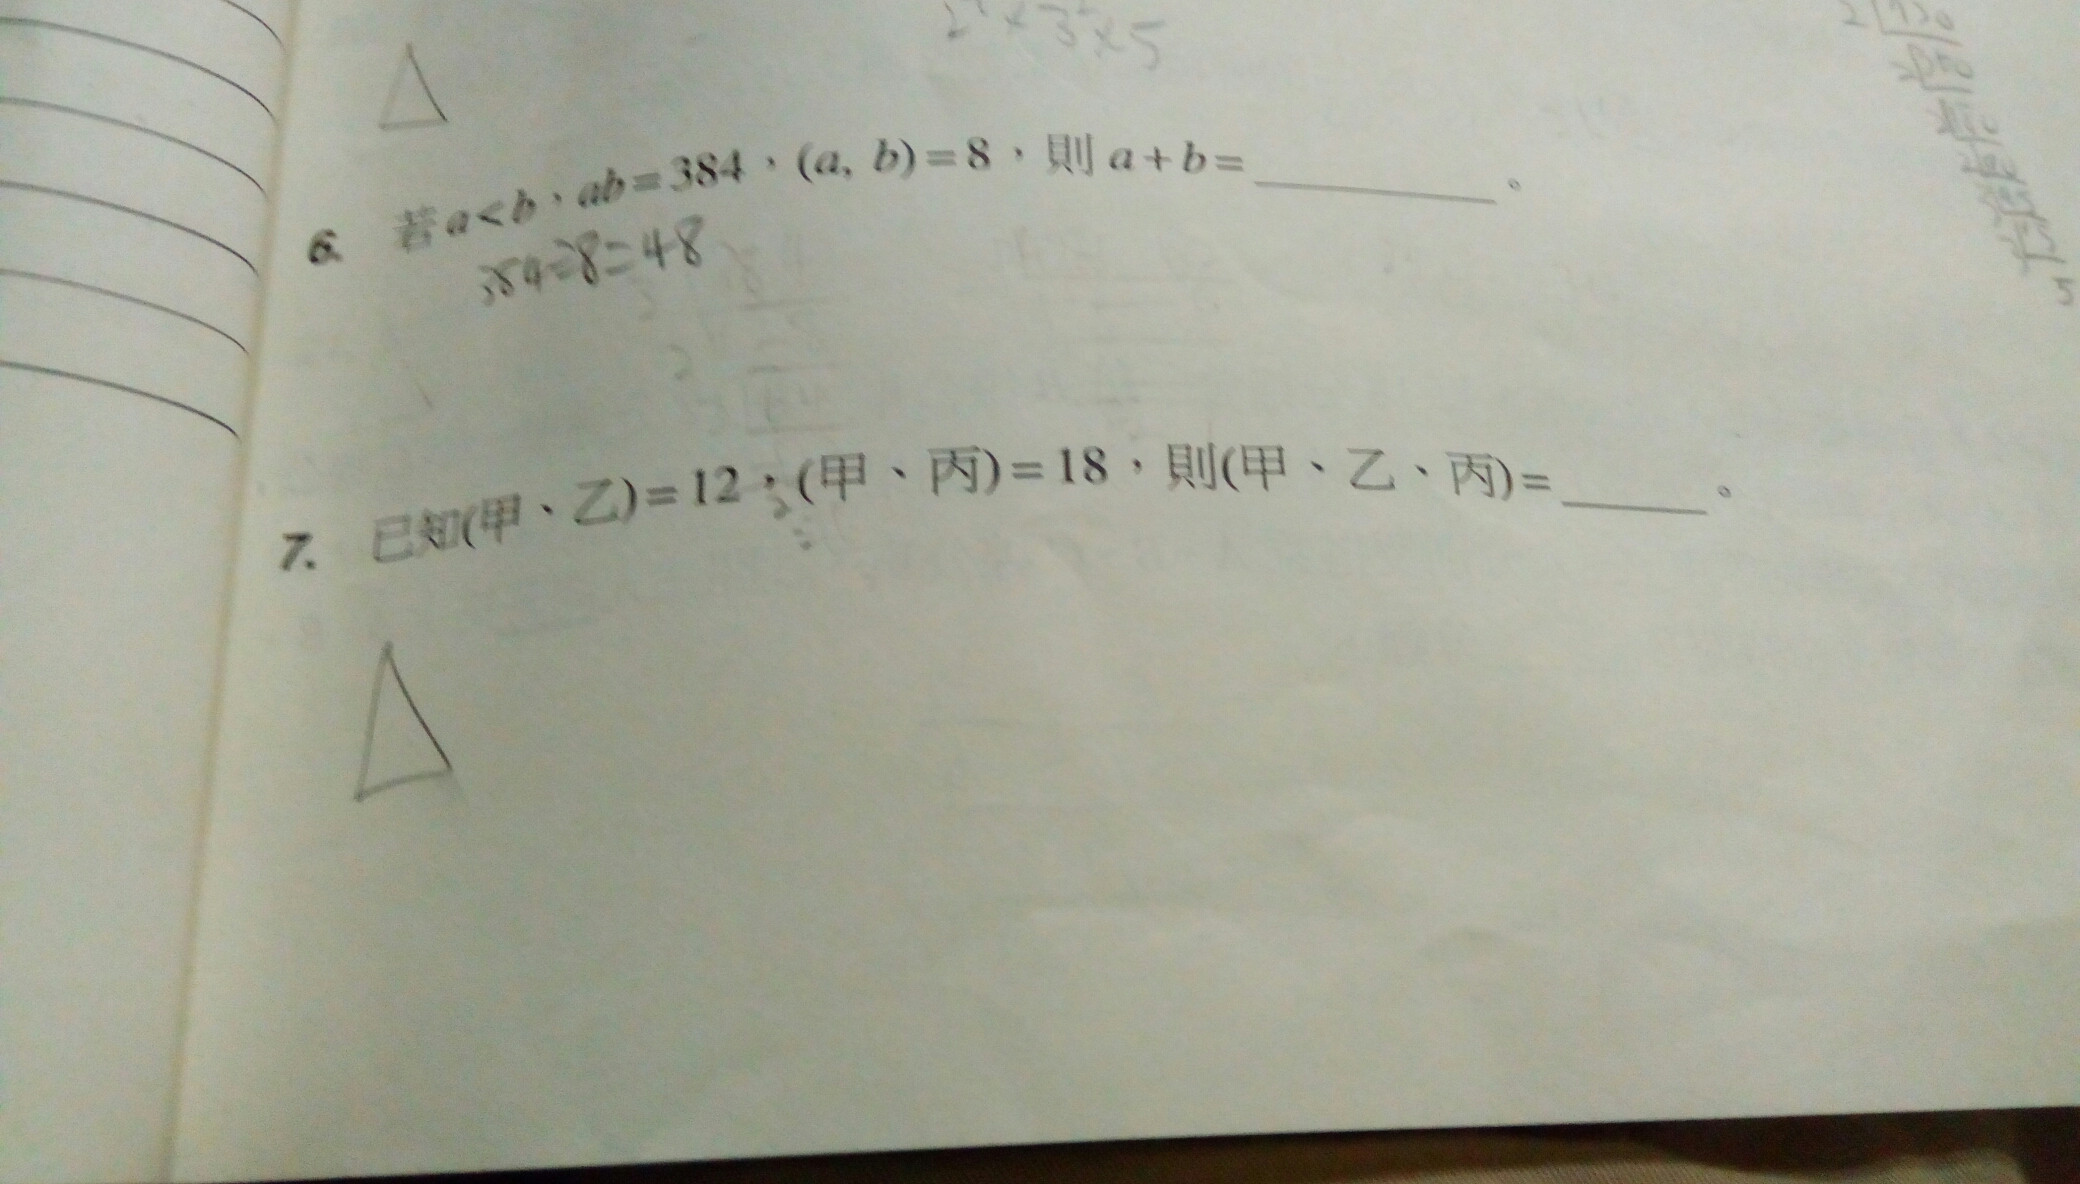 2 × 3 × 5
6. 若a<b,ab=384,(a, b)=8,則a+b=______。
384÷8=48
7. 已知(甲、乙)=12,(甲、丙)=18,則(甲、乙、丙)=______。